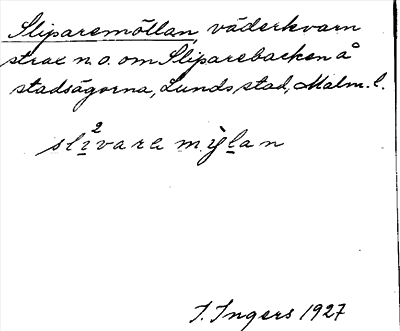 Sliparemöllan, väderkvarn
strax n.o. om Sliparebacken å
stadsägorna, Lunds stad, Malm. l.
sli²vara mỳlan
I. Ingers 1927